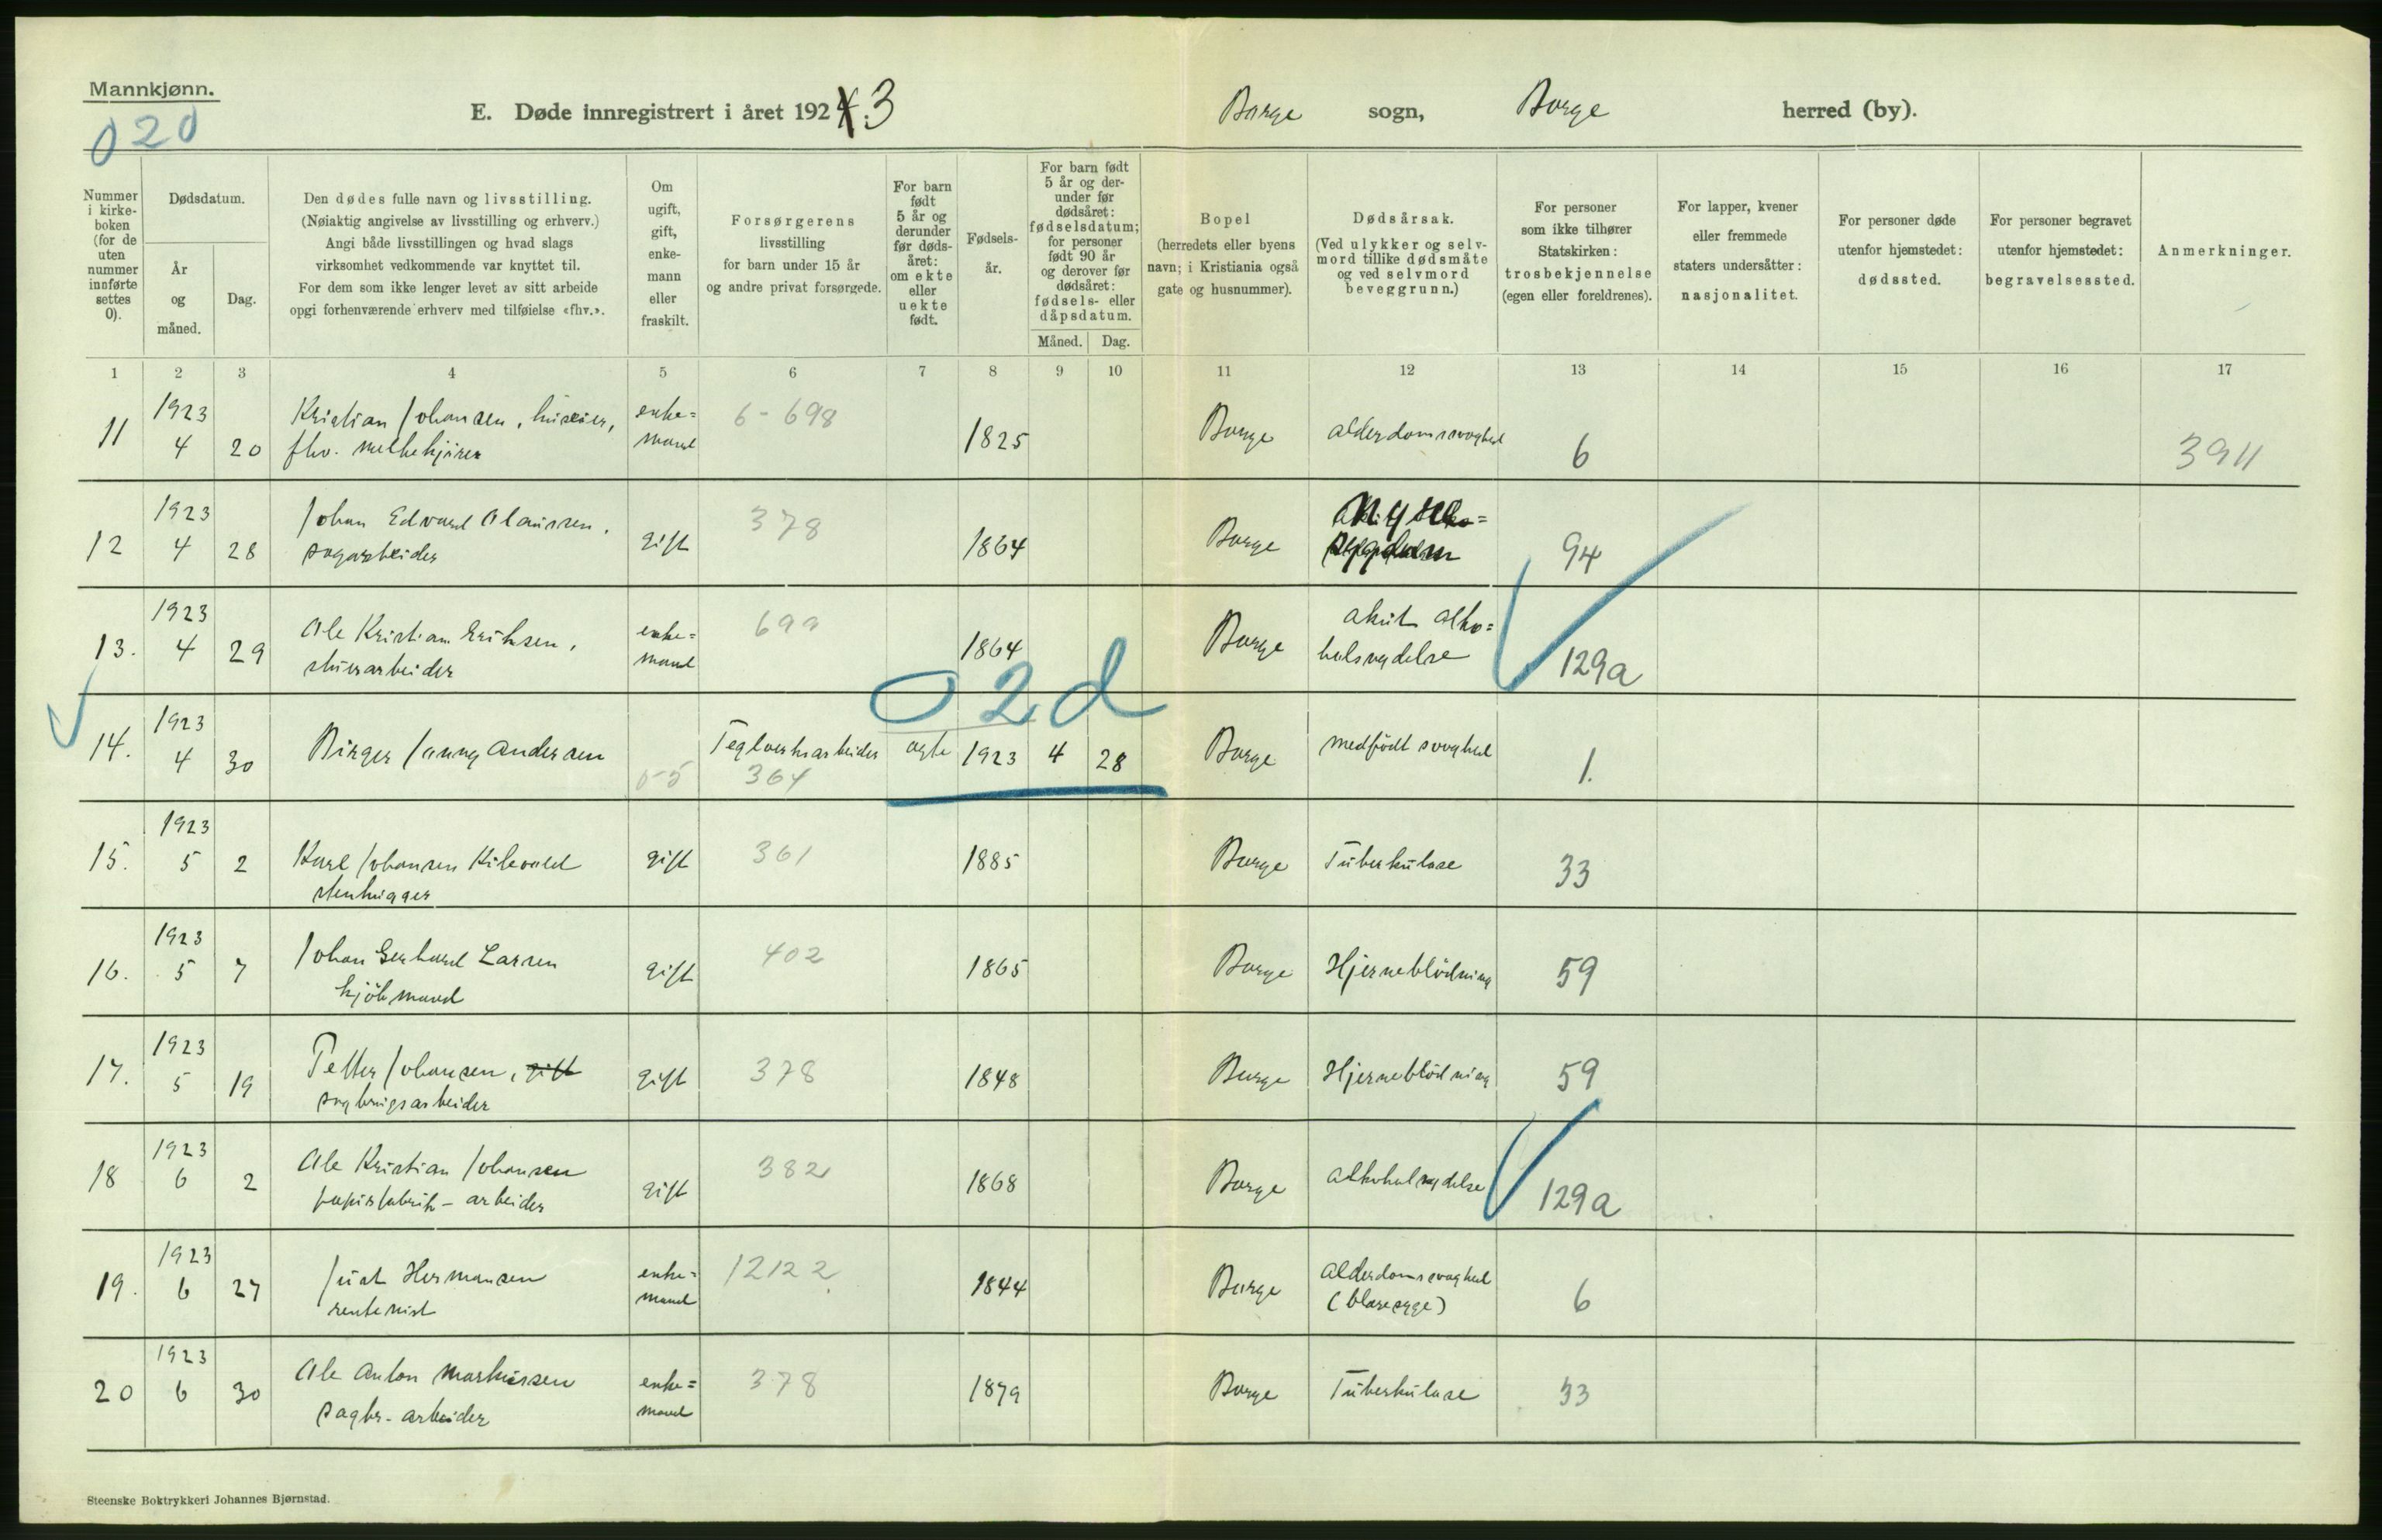 Mannkjønn.
020
E. Døde innregistrert i året 1924.3
Borge sogn, Borge herred (by).
Nummer i kirke-boken (for de uten nummer innførte settes 0).
Dødsdatum.
År og måned.
Dag.
Den dødes fulle navn og livsstilling.
(Nøiaktig angivelse av livsstilling og erhverv.)
Angi både livsstillingen og hvad slags
virksomhet vedkommende var knyttet til.
For dem som ikke lenger levet av sitt arbeide
opgi forhenværende erhverv med tilføielse «fhv.».
Om ugift, gift, enke-mann eller fraskilt.
Forsørgerens
livsstilling
for barn under 15 år
og andre privat forsørgede.
For barn født 5 år og derunder før døds-året: om ekte eller uekte født.
Fødsels-år.
For barn født 5 år og der-under før dødsåret: fødselsdatum; for personer født 90 år og derover før dødsåret: fødsels- eller dåpsdatum.
Måned. Dag.
Bopel
(herredets eller byens
navn; i Kristiania også
gate og husnummer).
Dødsårsak.
(Ved ulykker og selv-
mord tillike dødsmåte
og ved selvmord
beveggrunn.)
For personer
som ikke tilhører
Statskirken:
trosbekjennelse
(egen eller foreldrenes).
For lapper, kvener
eller fremmede
staters undersåtter:
nasjonalitet.
For personer døde
utenfor hjemstedet:
dødssted.
For personer begravet
utenfor hjemstedet:
begravelsessted.
Anmerkninger.
1 2 3 4 5 6 7 8 9 10 11 12 13 14 15 16 17
1923 Kristian Johansen, huseier, enke= 6-698
11 4 20 fhv. melkekjører mand 1825 Borge alderdomssvaghed 6 3911
1923 Johan Edvard Olaussen, 378
12 4 28 sagarbeider gift 1864 Borge 94
1923 Ole Kristian Eriksen, enke= 699 akut alko=
13. 4 29 stuerarbeider mand 1864 Borge holsnydelse 129a
02d
1923
14. 4 30 Birger Janny Andersen Teglverksarbeider ægte 1923 4 28 Borge medfødt svaghed 1.
364
1923
15. 5 2 Karl Johansen Kilevold gift 361 1885 Borge Tuberkulose 33
stenhugger
1923
16. 5 7 Johan Gerhard Larsen gift 402 1865 Borge Hjerneblødning 59
kjøbmand
1923
17. 5 19 Petter Johansen, gift gift 378 1848 Borge Hjerneblødning 59
sagbrugsarbeider
1923
18 6 2 Ole Kristian Johansen gift 382 1868 Borge alkoholnydelse 129a
papirfabrik-arbeider
1923
19. 6 27 Just Hermansen enke= 12122 1844 Borge alderdomssvaghed 6
rentenist mand (blæresyge)
1923
20 6 30 Ole Anton Markussen enke= 378 1879 Borge Tuberkulose 33
sagbr-arbeider mand
Steenske Boktrykkeri Johannes Bjørnstad.